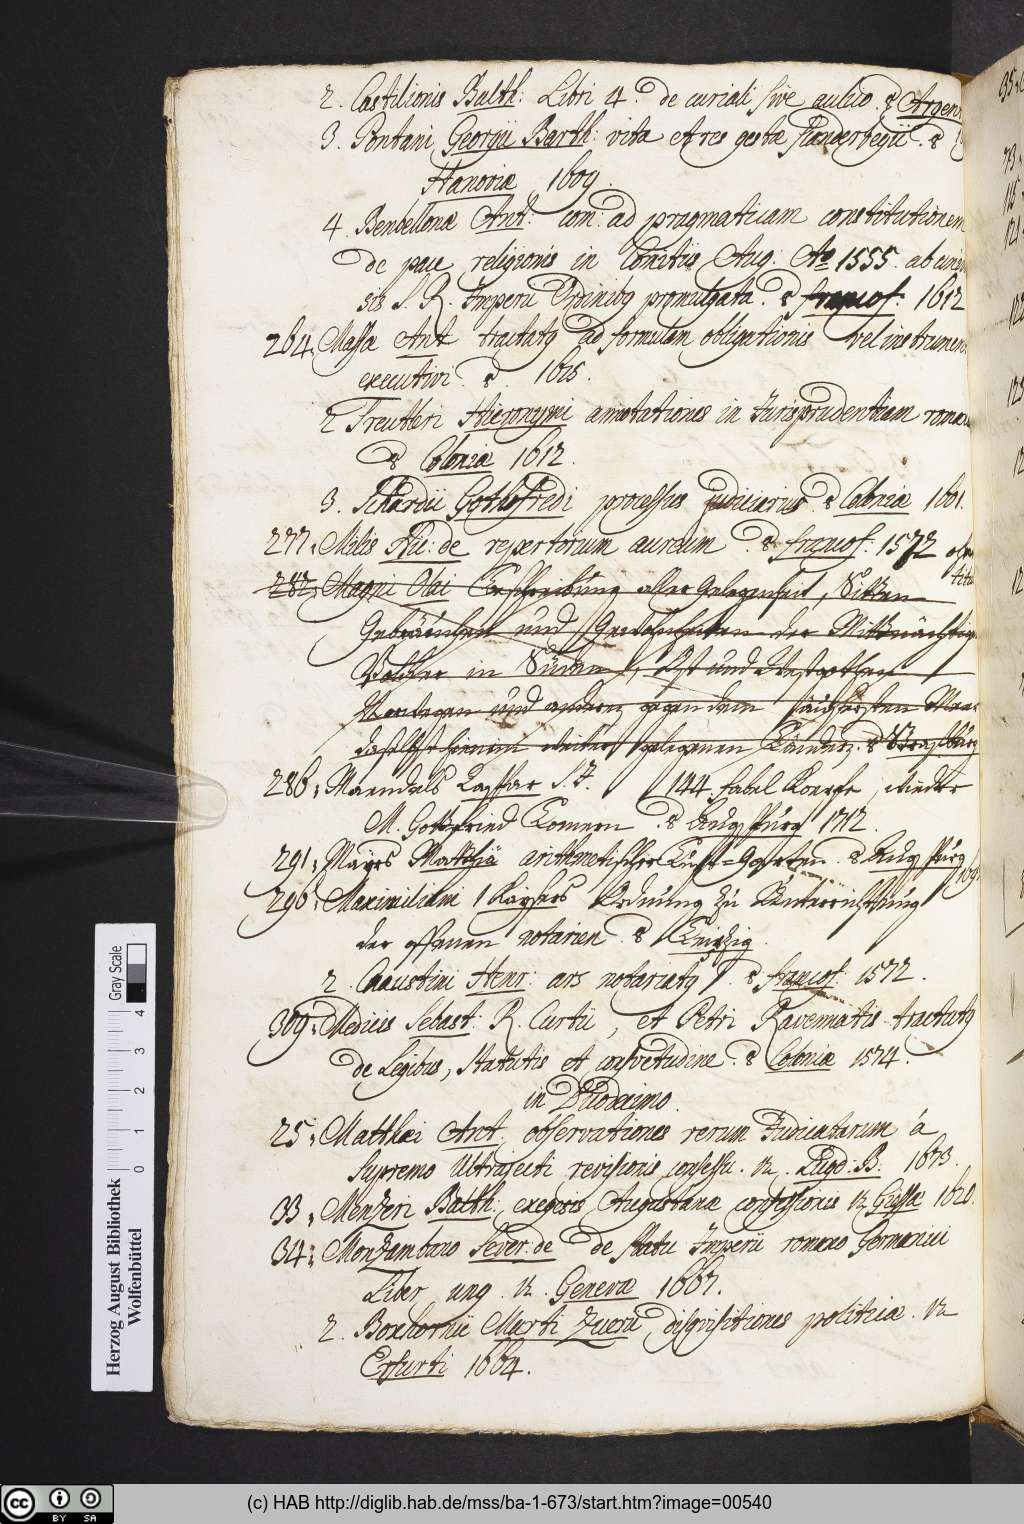 2. Castilionis Balth: Libri 4. de curiali sive aulico. 8 Argen
3. Pontani Georgii Barth: vita et res gestæ Scanderbegii. 8
Hanoviæ 1609.
4. Benbellonæ Ant: com. ad pragmaticam constitutionem
de pace religionis in Comitiis Aug: Ao 1555. ab
S. R. Imperii Ordinibq promulgata. 8 francof. 1612
264. Massæ Ant tractatq ad formulam obligationis vel instrumen
executivi. 8. 1615.
2 Treutleri Hieronymi annotationes in Jurisprudentiam roman
8 Coloniæ 1612.
3. Schardii Gothofredi processus judiciarius. 8 Coloniæ 1601.
277. Milis Nic: de repertorium aureum. 8. francof: 1572
282. Magni Olai Beschreibung aller Gelegenheit, Sitten
Gebräuchen und Gewohnheiten der Mitnächtigen
Völcker in Süden, Ost und Westgothen
Norwegen und andern gegen dem
daselbst hinein weiter gelegenen Länder. 8 Straßburg
286. Maendals Caspar S. J. 144 fabel Koepfe, wieder
M. Gottfried Romern. 8 Augspurg 1712.
291. Mayrs Matthiä arithmetischer Kunst-Garten. 8 Augspurg
296. Maximiliani 1 Kaysers Ordnung zu Unterrichtung
der offenen notarien. 8 Leipzig.
2. Chaustini Henr: ars notariatq. 8 francof: 1572.
309. Medicis Sebast: R. Curtii, et Petri Ravennatis tractatq
de Legibus, Statutis et consvetudine. 8 Coloniæ 1574.
in Duodecimo.
25. Matthæi Ant. observationes rerum Judicatarum á
Supremo Ultrajecti revisionis consessu. 12. Lugd: B. 1673.
33. Menzeri Balth: exegesis Augustanæ confessionis 12 Gissæ 1620.
34. Monzambano Sever: de de statu Imperii romano Germanici
Liber unq. 12. Genevæ 1667.
2. Boxhornii Marti Zuerii disquisitiones politicæ. 12
Erfurti 1664.
Herzog August Bibliothek
Wolfenbüttel
0 1 2 3 4
Gray Scale
cc BY SA
(c) HAB http://diglib.hab.de/mss/ba-1-673/start.htm?image=00540